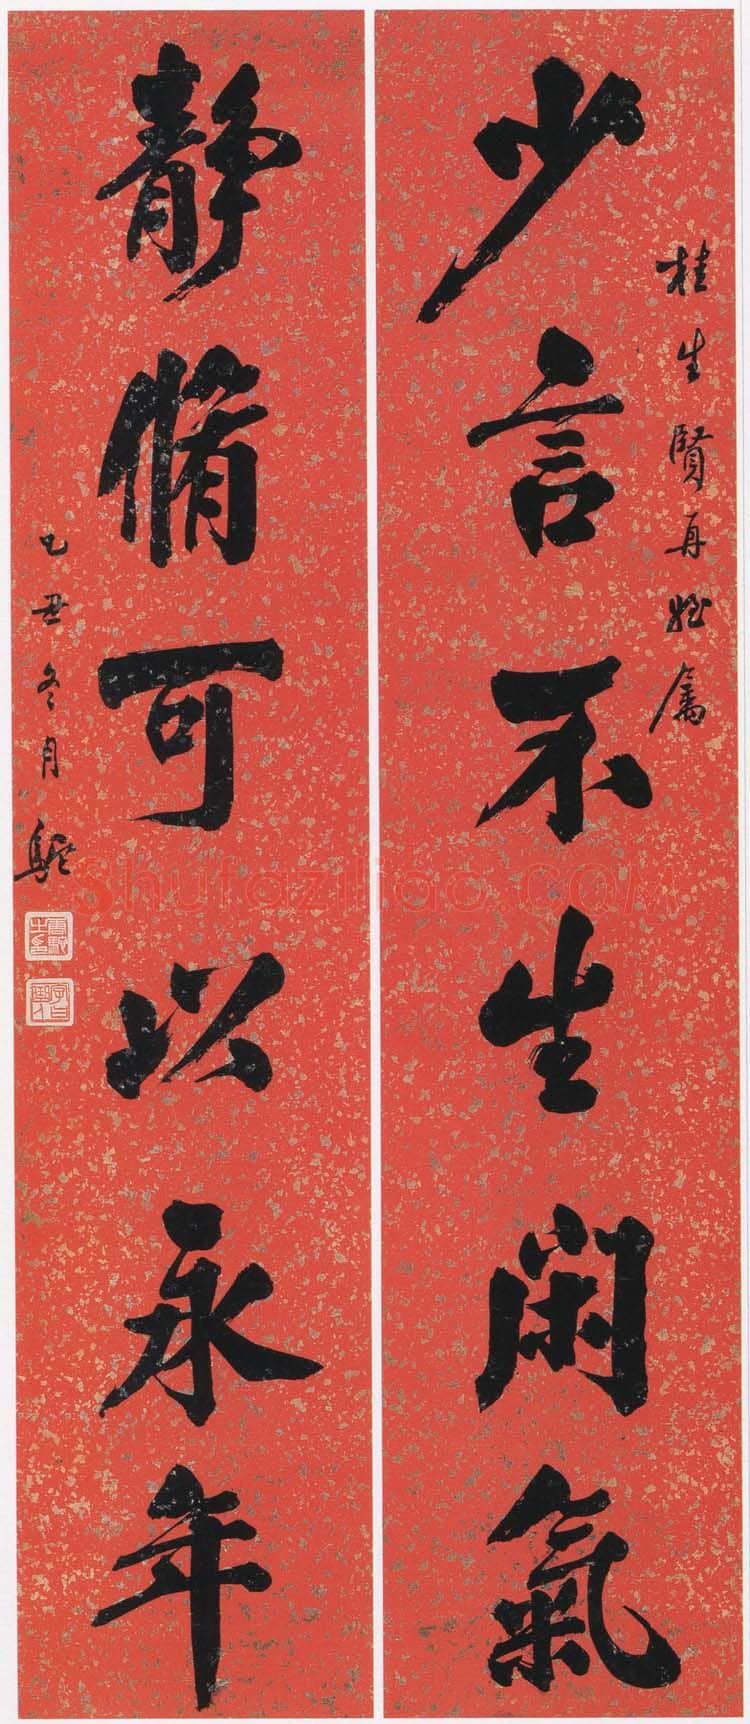 桂生賢再姪屬
少言不生閑氣
靜脩可以永年
乙丑冬月
Shufaziliao.COM